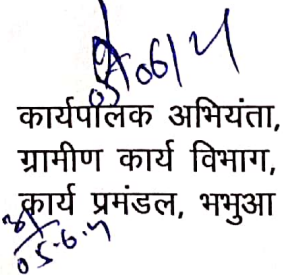 कार्यपालक अभियंता,
ग्रामीण कार्य विभाग,
कार्य प्रमंडल, भभुआ
05.6.4